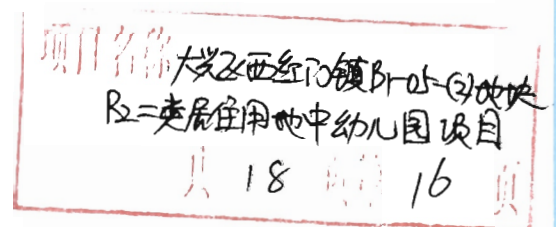 项目名称 大兴区西红门镇B1-05-(2)地块
R2二类居住用地中幼儿园项目
共 18 16 页